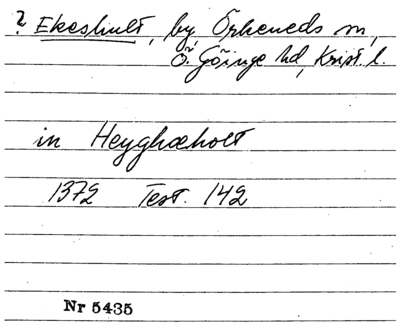 ? Ekeshult, by, Örkeneds sn,
Ö. Göinge hd, Krist. l.
in Heyghæholt
1372 Test. 142
Nr 5435